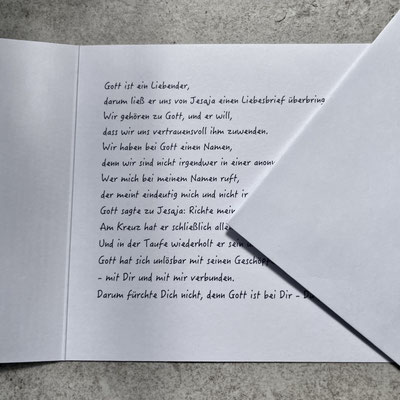 Gott ist ein Liebender,
darum ließ er uns von Jesaja einen Liebesbrief überbring
Wir gehören zu Gott, und er will,
dass wir uns vertrauensvoll ihm zuwenden.
Wir haben bei Gott einen Namen,
denn wir sind nicht irgendwer in einer anon
Wer mich bei meinem Namen ruft,
der meint eindeutig mich und nicht ir
Gott sagte zu Jesaja: Richte mein
Am Kreuz hat er schließlich alle
Und in der Taufe wiederholt er sein
Gott hat sich unlösbar mit seinen Geschöpf
- mit Dir und mit mir verbunden.
Darum fürchte Dich nicht, denn Gott ist bei Dir -